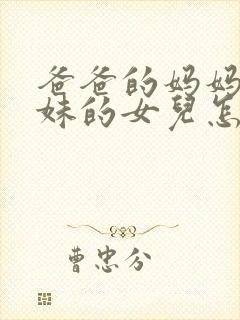 爸爸的妈妈
妹的女兒怎
曹忠分